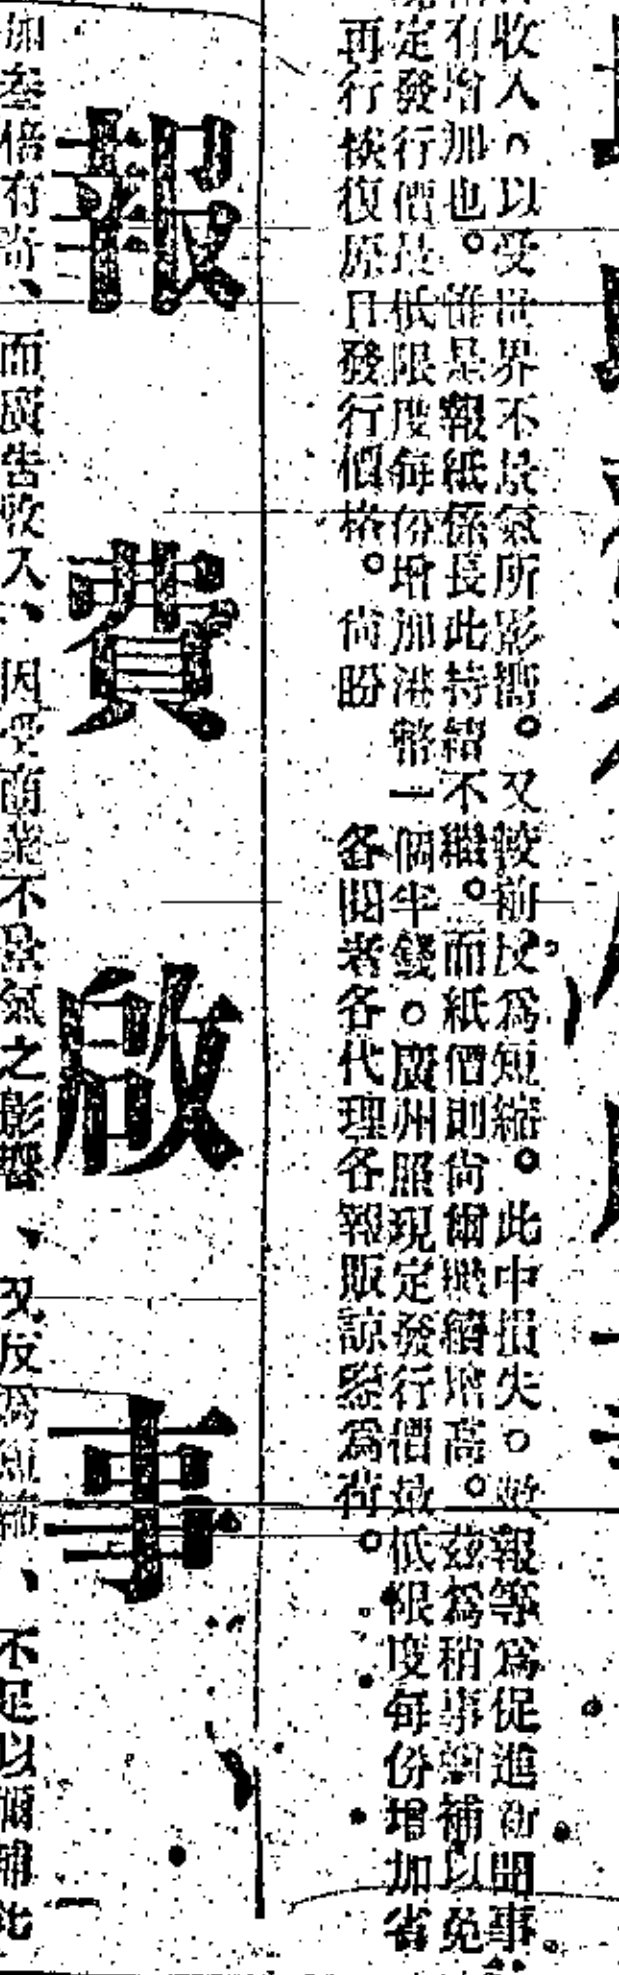 收入。以受世界不景氣所影響。又較前反爲短縮。此中損失。敝報等爲促進新聞事
有增加也。惟是報紙係長此特續不繼。而紙價則尙爾繼續增高。茲爲稍事彌補以免
定發行價最低限度每份增加港幣一個半錢。廣州照現定發行價最低限度每份增加省
再行恢復原日發行價格。尙盼 各閱者各代理各報販諒鑒爲荷。
報費啟事
加叁倍有奇、而廣告收入、因受商業不景氣之影響、又反爲短縮、不足以彌補此